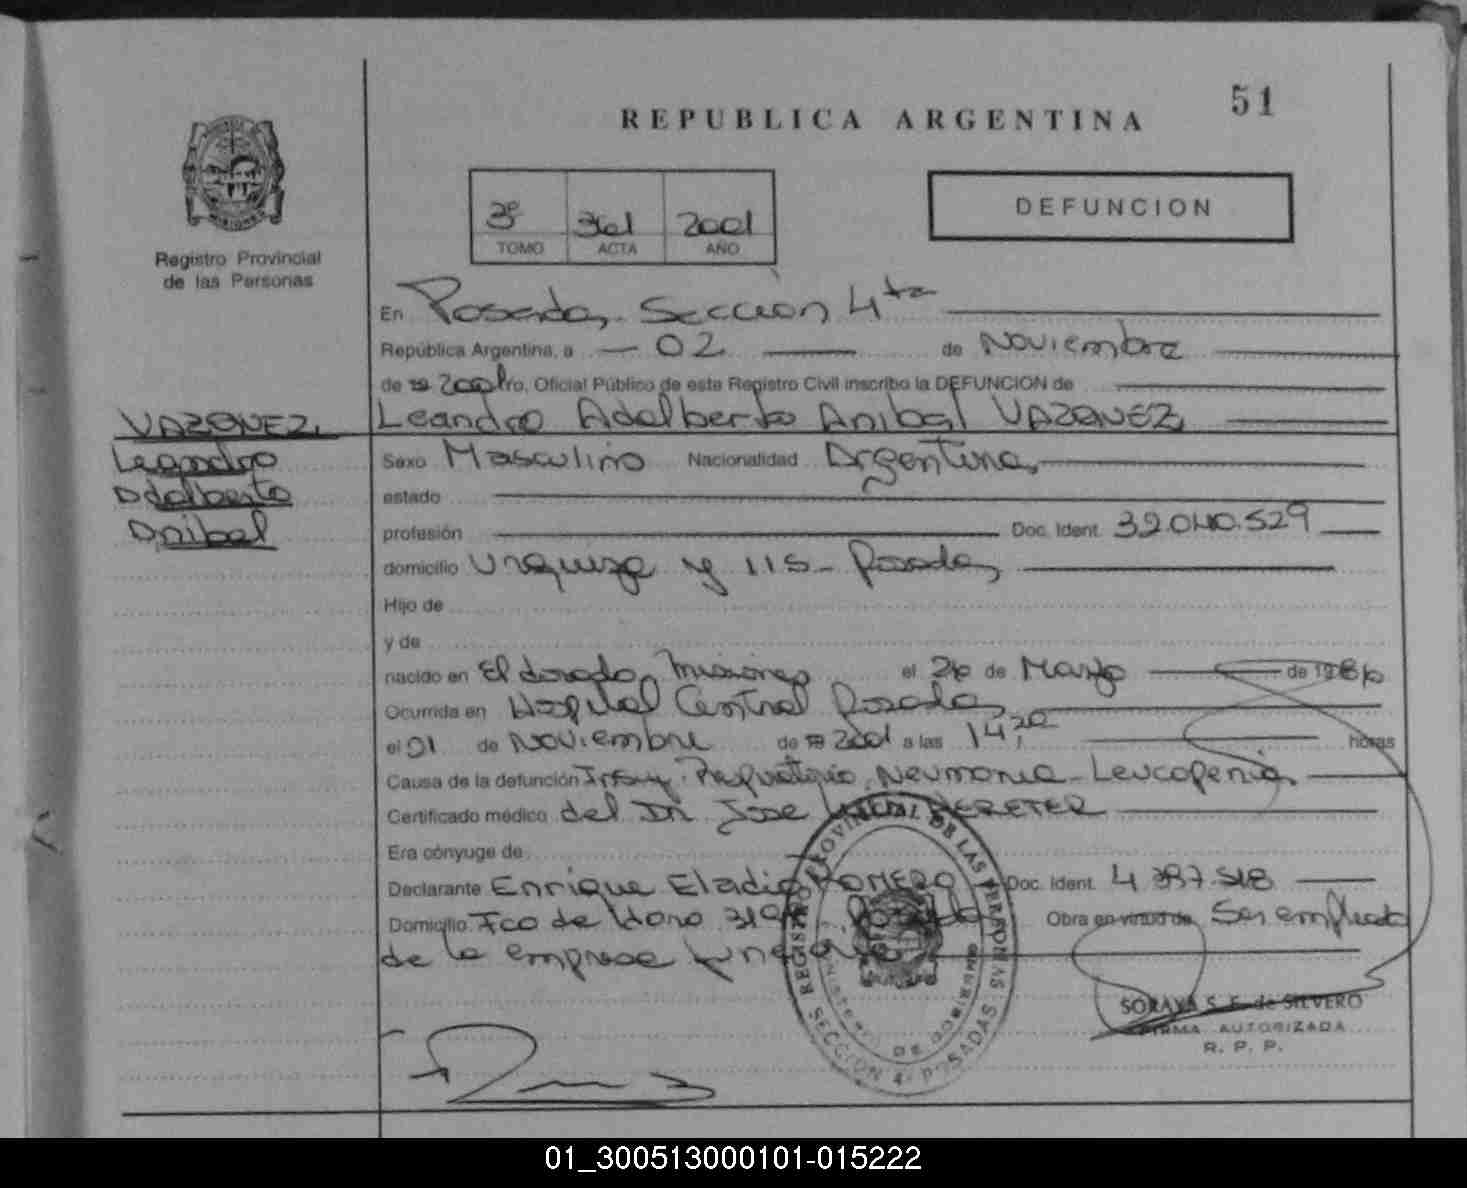 51
REPUBLICA ARGENTINA
3º 361 2001
TOMO ACTA AÑO
DEFUNCION
Registro Provincial
de las Personas
En Posadas, Sección 4ta
República Argentina, a 02 de Noviembre
de 19 2001 ro, Oficial Público de este Registro Civil inscribo la DEFUNCION de
VAZQUEZ, Leandro Adalberto Anibal VAZQUEZ,
Leandro Sexo Masculino Nacionalidad Argentina,
Adalberto estado
Anibal profesión Doc. Ident. 32.040.529
domicilio Urquiza y 115 - Posadas,
Hijo de
y de
nacido en El dorado, Misiones el 26 de Marzo de 1986
Ocurrida en Hospital Central Posadas,
el 01 de Noviembre de 19 2001 a las 14 20 horas
Causa de la defunción Insuf. Respiratoria, Neumonia - Leucopenia,
Certificado médico del Dr. Jose HERETER
Era cónyuge de
Declarante Enrique Eladio ROMERO Doc. Ident. 4.387.518
Domicilio Fco de Haro Posadas Obra en virtud de Ser empleado
de la empresa funebre
REGISTRO PROVINCIAL DE LAS PERSONAS
MINISTERIO DE GOBIERNO
SECCION 4 POSADAS
SORAYA S. F. de SILVERO
FIRMA AUTORIZADA
R. P. P.
01_300513000101-015222